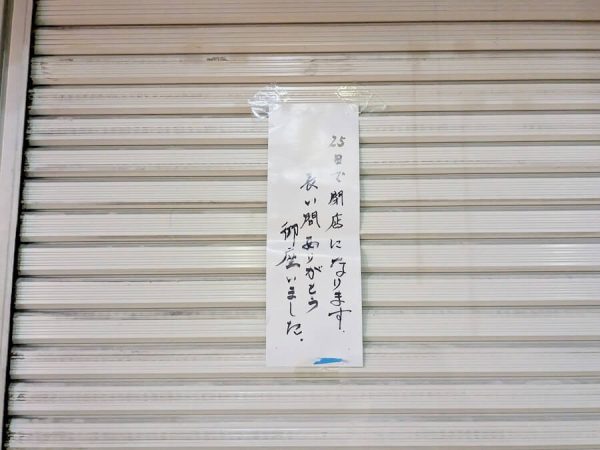 25日で閉店になります.
長い間ありがとう
御座いました.